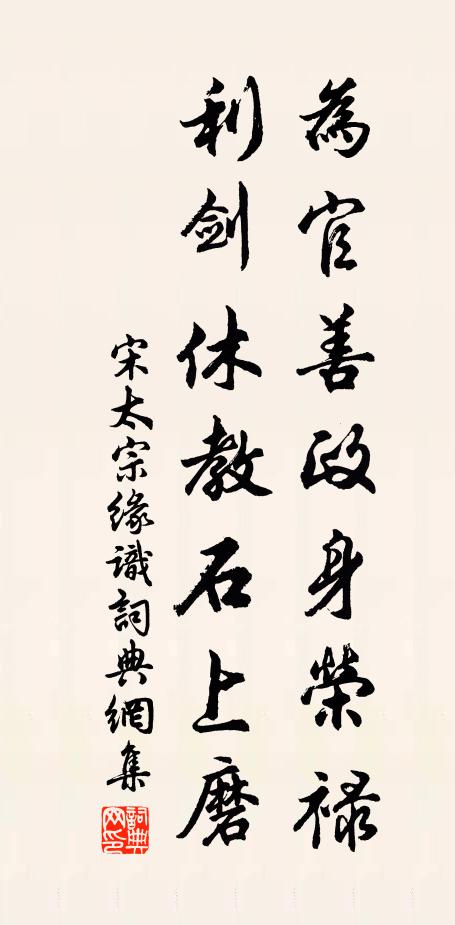 為官善政身榮祿
利劍休教石上磨
宋太宗緣識詞典網集
詞典网印